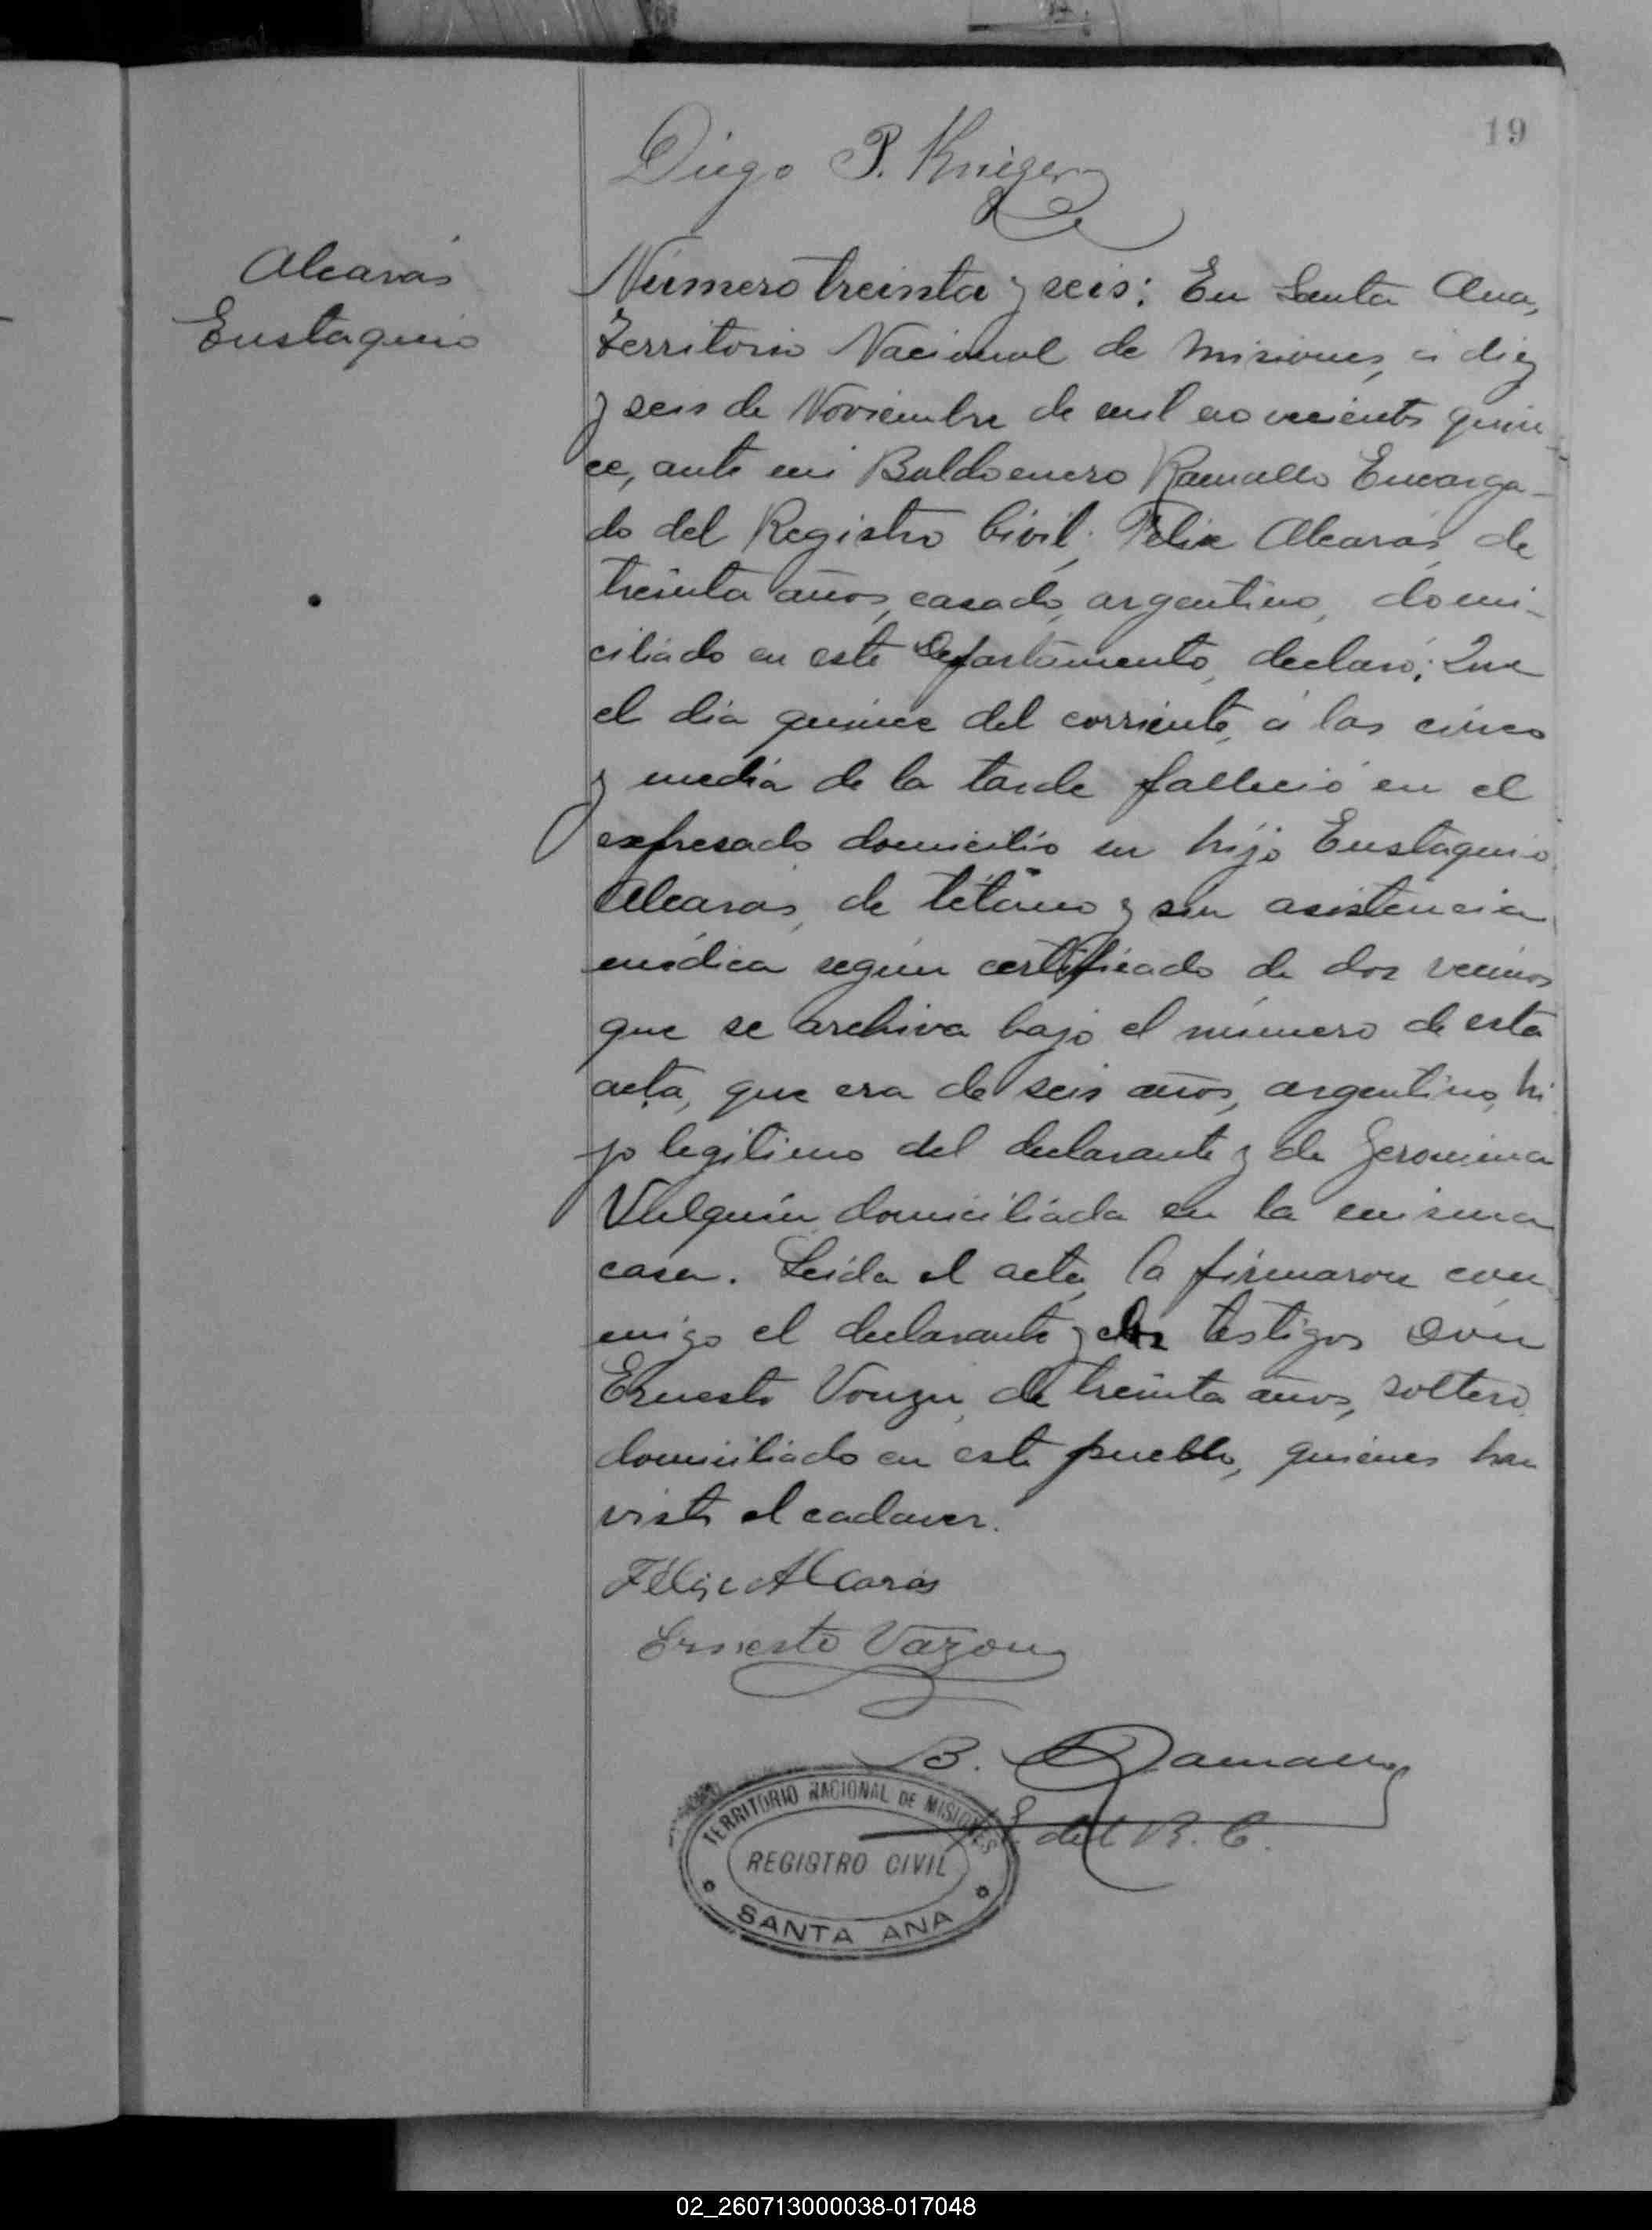 19
Diego P. Krieger
Alcarás
Eustaquio
Número treinta y seis: En Santa Ana,
Territorio Nacional de Misiones, á diez
y seis de Noviembre de mil novecientos quin
ce, ante mi Baldomero Ramallo Encarga-
do del Registro Civil; Felix Alcarás, de
treinta años, casado, argentino, domi-
ciliado en este Departamento, declaró: Que
el dia quince del corriente, á las cinco
y media de la tarde falleció en el
expresado domicilio su hijo Eustaquio
Alcarás, de tétano y sin asistencia
médica según certificado de dos vecinos
que se archiva bajo el número de esta
acta, que era de seis años, argentino, hi
jo legitimo del declarante y de Geronima
domiciliada en la misma
casa. Leida el acta, la firmaron con
migo el declarante y los testigos Don
Ernesto de treinta años, soltero,
domiciliado en este pueblo, quienes han
visto el cadaver.
Félix Alcarás
Ernesto Vazon
B. Ramallo
E. del R. C.
TERRITORIO NACIONAL DE MISIONES
REGISTRO CIVIL
SANTA ANA
02_260713000038-017048